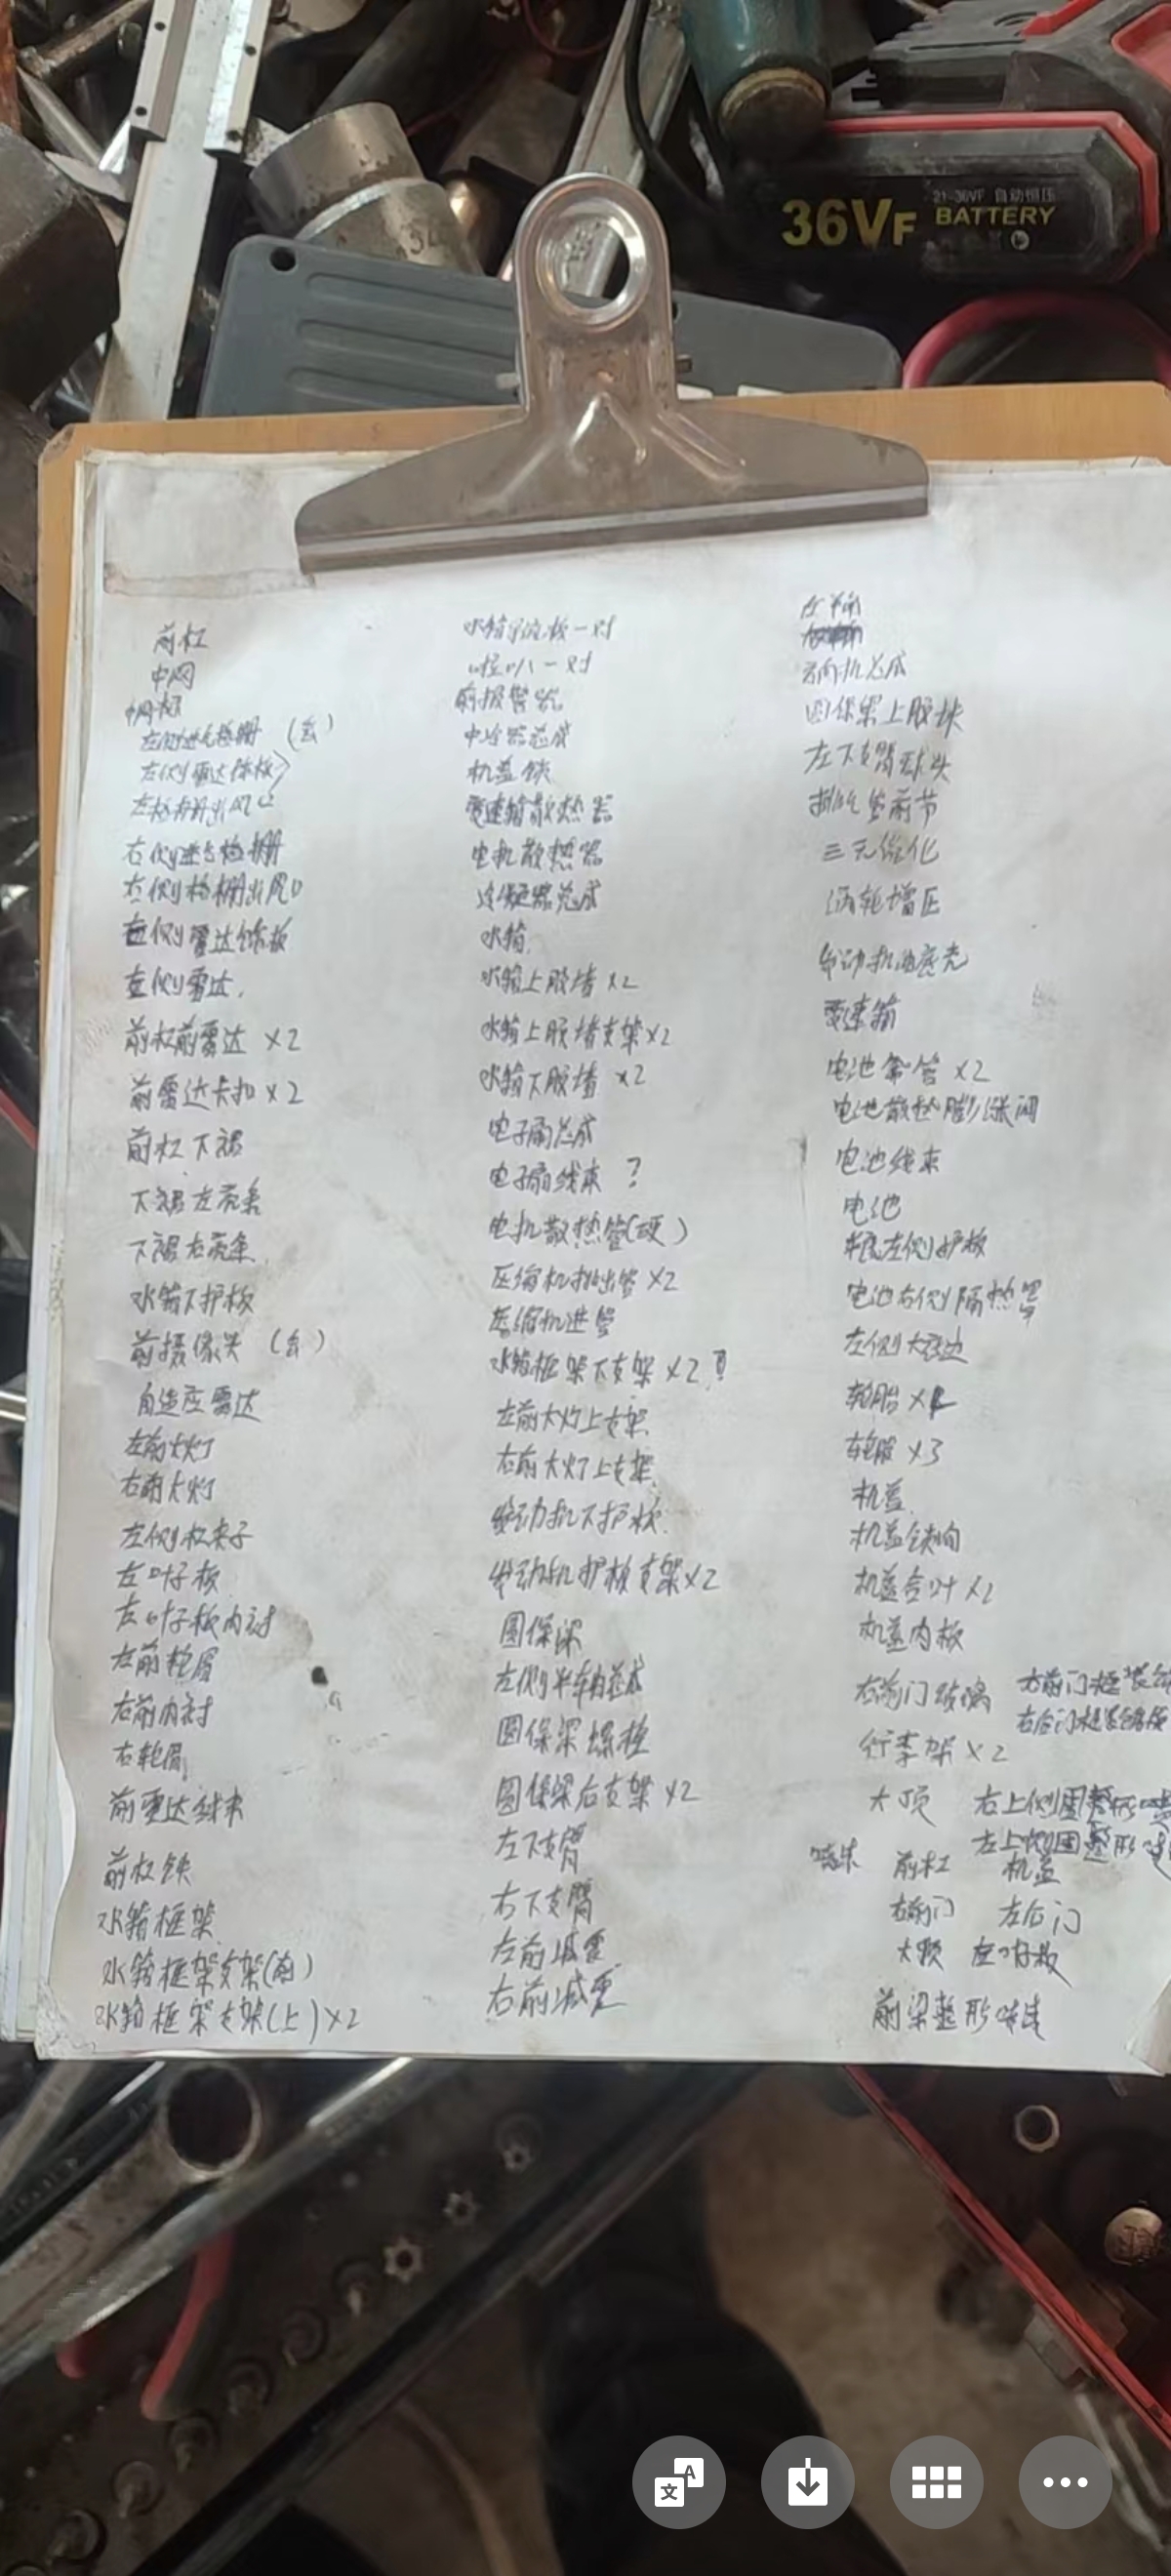 21-36VF 自动恒压
36VF BATTERY
前杠
中网
中网标
左侧进气格栅（玄）
左侧雷达饰板
左格栅出风口
右侧进气格栅
右侧格栅出风口
左侧雷达饰板
左侧雷达.
前杠前雷达 ×2
前雷达卡扣 ×2
前杠下裙
下裙左亮条
下裙右亮条
水箱下护板
前摄像头
自适应雷达
左前大灯
右前大灯
左侧杠夹子
左叶子板
左叶子板内衬
左前轮眉
右前内衬
右轮眉
前雷达线束
前杠铁
水箱框架
水箱框架支架(前)
水箱框架支架(上)×2
水箱导流板一对
喇叭一对
前报警器
中冷器总成
机盖锁
变速箱散热器
电机散热器
冷凝器总成
水箱.
水箱上胶堵 ×2
水箱上胶堵支架×2
水箱下胶堵 ×2
电子扇总成
电子扇线束 ?
电机散热管(硬)
压缩机排出管 ×2
压缩机进管
水箱框架下支架 ×2
左前大灯上支架
右前大灯上支架
发动机下护板
发动机护板支架×2
圆保梁
左侧半轴总成
圆保梁螺栓
圆保梁后支架 ×2
左下支臂
右下支臂
左前减震
右前减震
方向机总成
圆保梁上胶块
左下支臂球头
排气管前节
三元催化
涡轮增压
发动机油底壳
变速箱
电池 管 ×2
电池散热膨胀阀
电池线束
电池
左侧护板
电池右侧隔热
左侧大边
轮胎 ×
轮股 ×3
机盖
机盖铁
机盖合叶 ×2
机盖内板
右前门玻璃 右前门框
右后门框
行李架 ×2
大顶 右上侧围整形
左上侧围整形
喷漆 前杠 机盖
右前门 左后门
大顶 左叶子板
前梁整形喷漆